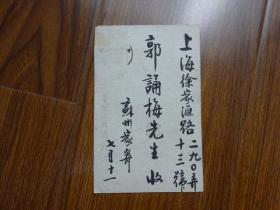 上海徐家匯路二九〇弄
十三號
郭誦梅先生收
蘇州家寄
七月十一